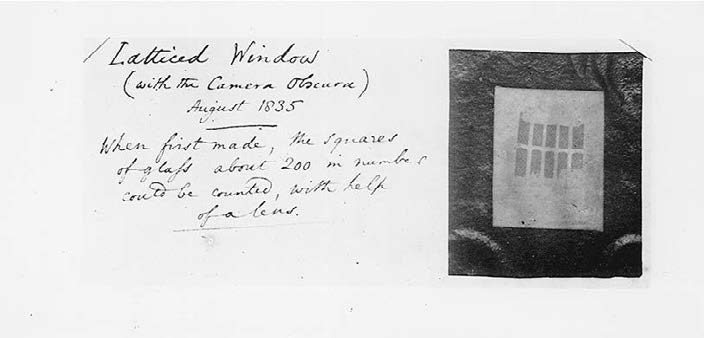 Latticed Window
(with the Camera Obscura)
August 1835
When first made, the squares
of glass about 200 in number
could be counted, with help
of a lens.